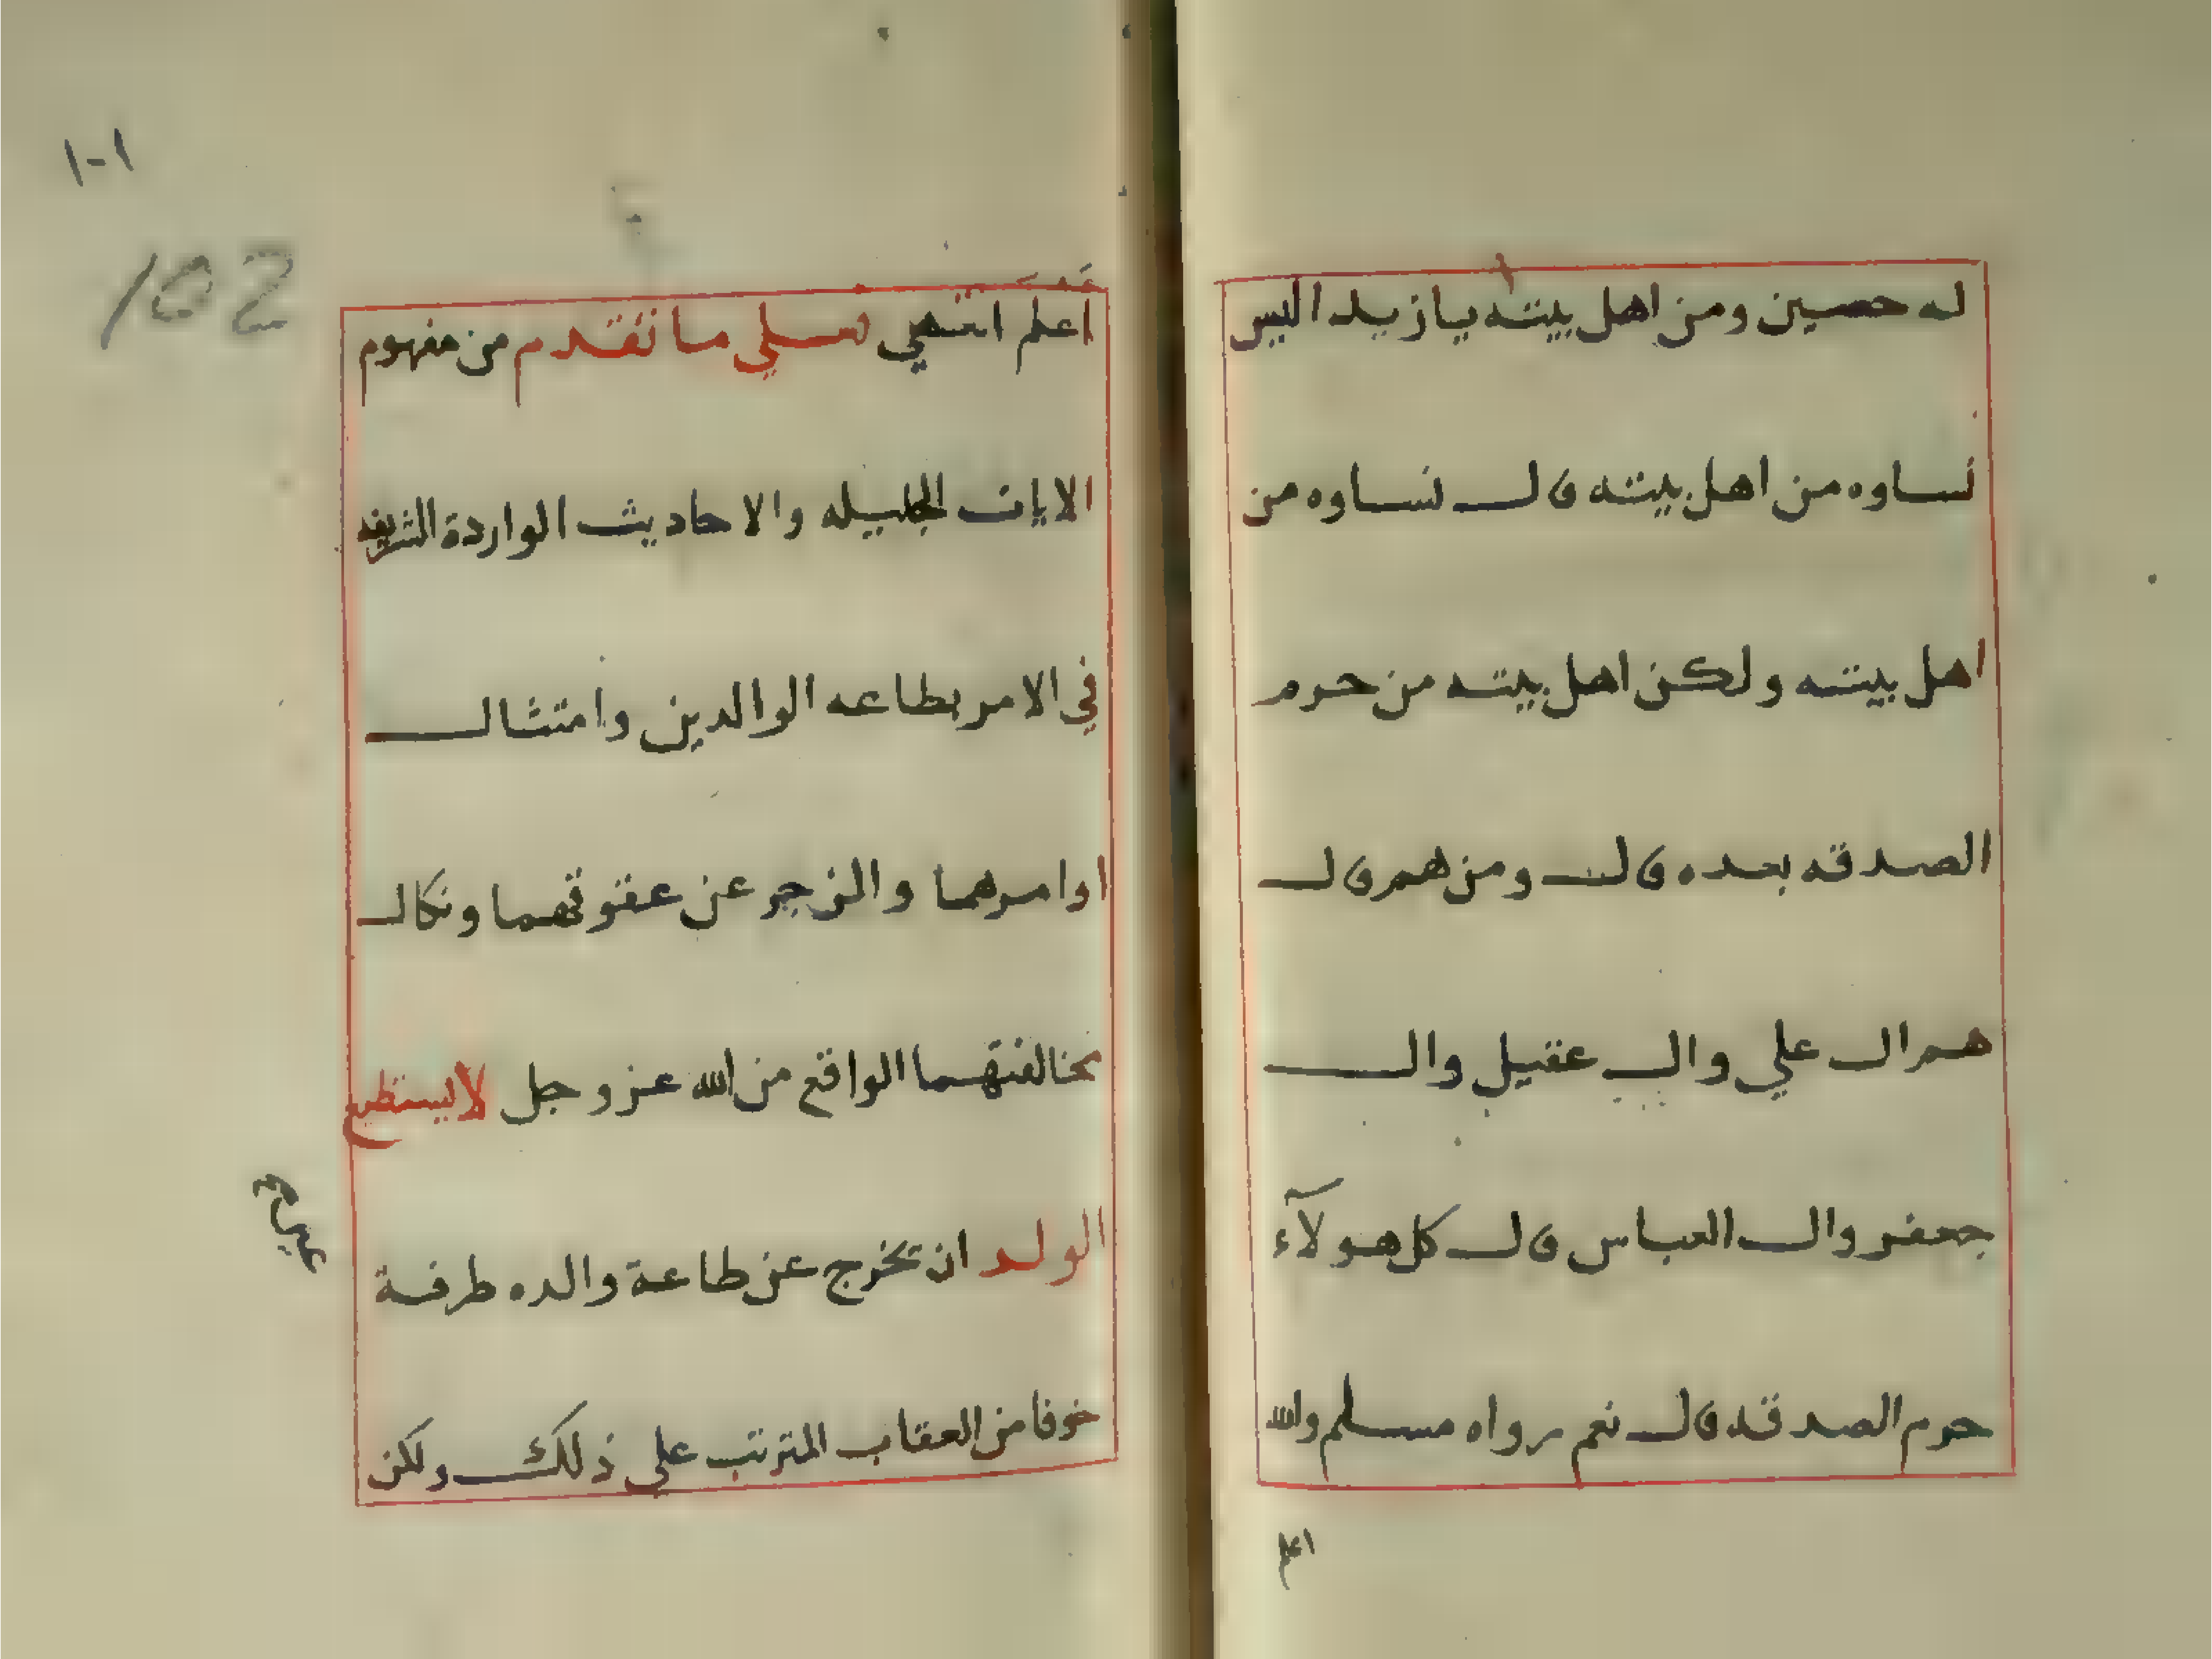 له حصين ومن اهل بيته يا زيد اليس
نساوه من اهل بيته قال نساوه من
اهل بيته ولكن اهل بيته من حرم
الصدقه بعده قال ومن هم قال
هم ال علي وال عقيل وال
جعفر وال العباس قال كل هولآء
حرم الصدقه قال نعم رواه مسلم والله
اعلم
١٠١
102
اعلم انتهي فعلي ما تقدم من مفهوم
الايات الجليله والاحاديث الواردة الشريفه
في الامر بطاعه الوالدين وامتثال
اوامرهما والزجر عن عقوقهما ونكال
مخالفتهما الواقع من الله عز وجل لا يستطيع
الولد ان تخرج عن طاعة والده طرفة
خوفا من العقاب المترتب علي ذلك ولكن